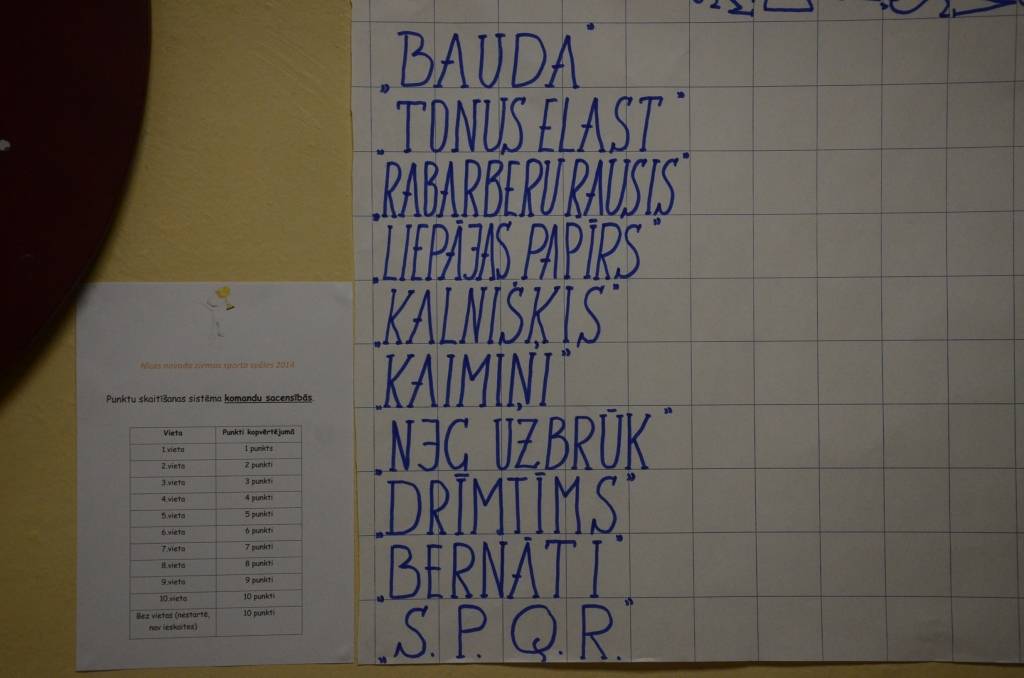 „BAUDA"
„TONUS ELAST"
„RABARBERU RAUSIS"
„LIEPĀJAS PAPĪRS"
„KALNIŠĶIS"
„KAIMIŅI"
„NEG UZBRŪK"
„DRĪMTĪMS"
„BERNĀTI"
„S.P.Q.R."
Nīcas novada ziemas sporta spēles 2014
Punktu skaitīšanas sistēma komandu sacensībās.
Vieta Punkti kopvērtējumā
1.vieta 1 punkts
2.vieta 2 punkti
3.vieta 3 punkti
4.vieta 4 punkti
5.vieta 5 punkti
6.vieta 6 punkti
7.vieta 7 punkti
8.vieta 8 punkti
9.vieta 9 punkti
10.vieta 10 punkti
Bez vietas (nestartē, 10 punkti
nav ieskaites)